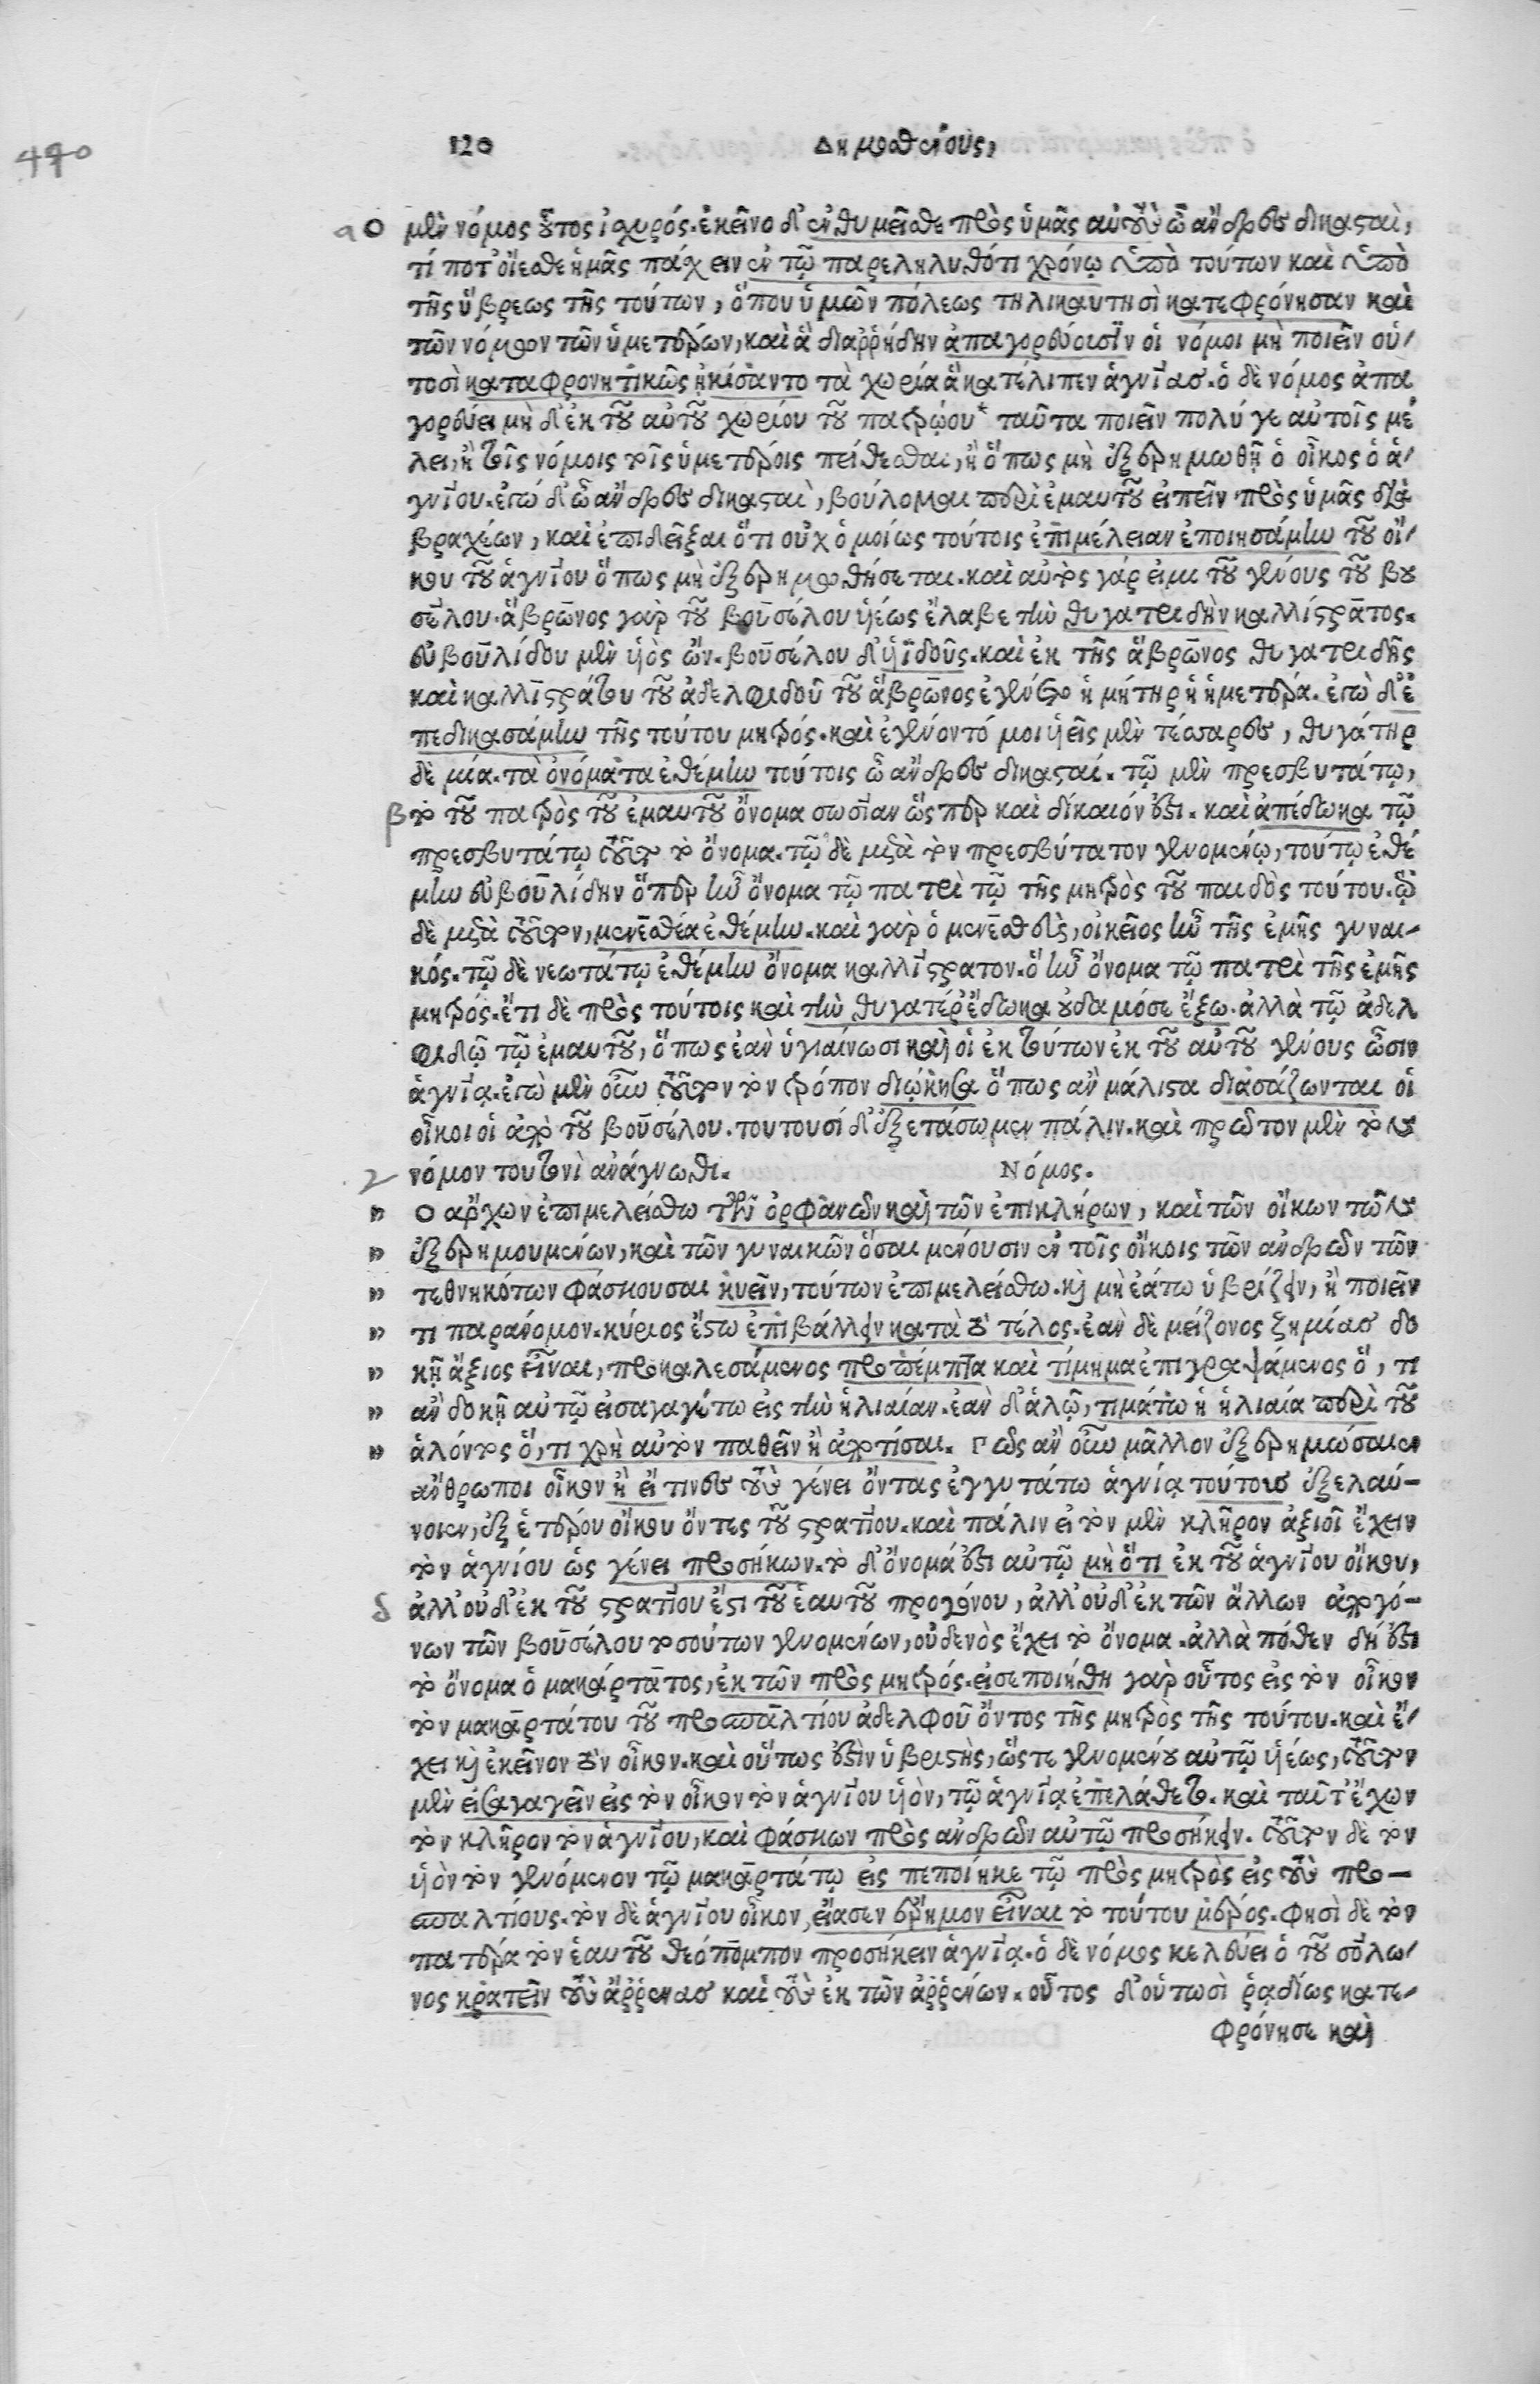 490
120 Δημοσθένους,
α Ο μὲν νόμος οὗτος ἰσχυρός. ἐκεῖνο δ' ἐνθυμεῖσθε πρὸς ὑμᾶς αὐτοὺς ὦ ἄνδρες δικασταὶ,
τί ποτ' οἴεσθε ἡμᾶς πάσχειν ἐν τῷ παρεληλυθότι χρόνῳ ὑπὸ τούτων καὶ ὑπὸ
τῆς ὕβρεως τῆς τούτων, ὅπου ὑμῶν πόλεως τηλικαυτησὶ κατεφρόνησαν καὶ
τῶν νόμων τῶν ὑμετέρων, καὶ ἃ διαῤῥήδην ἀπαγορεύουσιν οἱ νόμοι μὴ ποιεῖν οὑ-
τοσὶ καταφρονητικῶς ᾐκίσαντο τὰ χωρία ἃ κατέλιπεν ἁγνίας. ὁ δὲ νόμος ἀπα
γορεύει μὴ δ' ἐκ τοῦ αὐτοῦ χωρίου τοῦ πατρῴου* ταῦτα ποιεῖν πολύ γε αὐτοῖς μέ
λει, ἢ τοῖς νόμοις τοῖς ὑμετέροις πείθεσθαι, ἢ ὅπως μὴ ἐξερημωθῇ ὁ οἶκος ὁ ἁ-
γνίου. ἐγὼ δ' ὦ ἄνδρες δικασταὶ, βούλομαι περὶ ἐμαυτοῦ εἰπεῖν πρὸς ὑμᾶς διὰ
βραχέων, καὶ ἐπιδεῖξαι ὅτι οὐχ ὁμοίως τούτοις ἐπιμέλειαν ἐποιησάμην τοῦ οἴ-
κου τοῦ ἁγνίου ὅπως μὴ ἐξερημωθήσεται. καὶ αὐτὸς γάρ εἰμι τοῦ γένους τοῦ βου
σέλου. ἅβρωνος γὰρ τοῦ βουσέλου υἱέως ἔλαβε τὴν θυγατριδῆν καλλίστρατος.
εὐβουλίδου μὲν υἱὸς ὤν. βουσέλου δ' υἱϊδοῦς. καὶ ἐκ τῆς ἅβρωνος θυγατριδῆς
καὶ καλλιστράτου τοῦ ἀδελφιδοῦ τοῦ ἅβρωνος ἐγένετο ἡ μήτηρ ἡ ἡμετέρα. ἐγὼ δ' ἐ
πεδικασάμην τῆς τούτου μητρός. καὶ ἐγένοντό μοι υἱεῖς μὲν τέσσαρες, θυγάτηρ
δὲ μία. τὰ ὀνόματα ἐθέμην τούτοις ὦ ἄνδρες δικασταί. τῷ μὲν πρεσβυτάτῳ,
β τὸ τοῦ πατρὸς τοῦ ἐμαυτοῦ ὄνομα σωσίαν ὥσπερ καὶ δίκαιόν ἐστι. καὶ ἀπέδωκα τῷ
πρεσβυτάτῳ τοῦτο τὸ ὄνομα. τῷ δὲ μετὰ τὸν πρεσβύτατον γενομένῳ, τούτῳ ἐθέ
μην εὐβουλίδην ὅπερ ἦν ὄνομα τῷ πατρὶ τῷ τῆς μητρὸς τοῦ παιδὸς τούτου. ᾧ
δὲ μετὰ τοῦτον, μενεσθέα ἐθέμην. καὶ γὰρ ὁ μενεσθεὺς, οἰκεῖος ἦν τῆς ἐμῆς γυναι-
κός. τῷ δὲ νεωτάτῳ ἐθέμην ὄνομα καλλίστρατον. ὃ ἦν ὄνομα τῷ πατρὶ τῆς ἐμῆς
μητρός. ἔτι δὲ πρὸς τούτοις καὶ τὴν θυγατέρ' ἔδωκα οὐδαμόσε ἔξω. ἀλλὰ τῷ ἀδελ
φιδῷ τῷ ἐμαυτοῦ, ὅπως ἐὰν ὑγιαίνωσι καὶ οἱ ἐκ τούτων ἐκ τοῦ αὐτοῦ γένους ὦσιν
ἁγνίᾳ. ἐγὼ μὲν οὖν τοῦτον τὸν τρόπον διῴκησα ὅπως ἂν μάλιστα διασώζωνται οἱ
οἶκοι οἱ ἀπὸ τοῦ βουσέλου. τουτουσὶ δ' ἐξετάσωμεν πάλιν. καὶ πρῶτον μὲν τὸν
γ νόμον τουτονὶ ἀνάγνωθι. Νόμος.
" Ο ἄρχων ἐπιμελείσθω τῶν ὀρφανῶν καὶ τῶν ἐπικλήρων, καὶ τῶν οἴκων τῶν
" ἐξερημουμένων, καὶ τῶν γυναικῶν ὅσαι μένουσιν ἐν τοῖς οἴκοις τῶν ἀνδρῶν τῶν
" τεθνηκότων φάσκουσαι κυεῖν, τούτων ἐπιμελείσθω. καὶ μὴ ἐάτω ὑβρίζειν, ἢ ποιεῖν
" τι παράνομον. κύριος ἔστω ἐπιβάλλειν κατὰ τὸ τέλος. ἐὰν δὲ μείζονος ζημίας δο
" κῇ ἄξιος εἶναι, προκαλεσάμενος πρόπεμπτα καὶ τίμημα ἐπιγραψάμενος ὅ, τι
" ἂν δοκῇ αὐτῷ εἰσαγαγέτω εἰς τὴν ἡλιαίαν. ἐὰν δ' ἁλῷ, τιμάτω ἡ ἡλιαία περὶ τοῦ
" ἁλόντος ὅ, τι χρὴ αὐτὸν παθεῖν ἢ ἀποτίσαι. Πῶς ἂν οὖν μᾶλλον ἐξερημώσαιεν
ἄνθρωποι οἶκον ἢ εἴ τινες τοὺς γένει ὄντας ἐγγυτάτω ἁγνίᾳ τούτους ἐξελαύ-
νοιεν, ἐξ ἑτέρου οἴκου ὄντες τοῦ στρατίου. καὶ πάλιν εἰ τὸν μὲν κλῆρον ἀξιοῖ ἔχειν
τὸν ἁγνίου ὡς γένει προσήκων. τὸ δ' ὄνομά ἐστι αὐτῷ μὴ ὅτι ἐκ τοῦ ἁγνίου οἴκου,
δ ἀλλ' οὐδ' ἐκ τοῦ στρατίου ἔστι τοῦ ἑαυτοῦ προγόνου, ἀλλ' οὐδ' ἐκ τῶν ἄλλων ἀπογό-
νων τῶν βουσέλου τοσούτων γενομένων, οὐδενὸς ἔχει τὸ ὄνομα. ἀλλὰ πόθεν δή ἐστι
τὸ ὄνομα ὁ μακάρτατος, ἐκ τῶν πρὸς μητρός. εἰσεποιήθη γὰρ οὗτος εἰς τὸν οἶκον
τὸν μακαρτάτου τοῦ προσπαλτίου ἀδελφοῦ ὄντος τῆς μητρὸς τῆς τούτου. καὶ ἔ-
χει καὶ ἐκεῖνον τὸν οἶκον. καὶ οὕτως ἐστὶν ὑβριστὴς, ὥστε γενομένου αὐτῷ υἱέως, τοῦτον
μὲν εἰσαγαγεῖν εἰς τὸν οἶκον τὸν ἁγνίου υἱὸν, τῷ ἁγνίᾳ ἐπελάθετο. καὶ ταῦτ' ἔχων
τὸν κλῆρον τὸν ἁγνίου, καὶ φάσκων πρὸς ἀνδρῶν αὐτῷ προσήκειν. τοῦτον δὲ τὸν
υἱὸν τὸν γενόμενον τῷ μακαρτάτῳ εἰς πεποίηκε τῷ πρὸς μητρὸς εἰς τοὺς προ-
σπαλτίους. τὸν δὲ ἁγνίου οἶκον, εἴασεν ἔρημον εἶναι τὸ τούτου μέρος. φησὶ δὲ τὸν
πατέρα τὸν ἑαυτοῦ θεόπομπον προσήκειν ἁγνίᾳ. ὁ δὲ νόμος κελεύει ὁ τοῦ σόλω-
νος κρατεῖν τοὺς ἄῤῥενας καὶ τοὺς ἐκ τῶν ἀῤῥένων. οὗτος δ' οὑτωσὶ ῥᾳδίως κατε-
φρόνησε καὶ